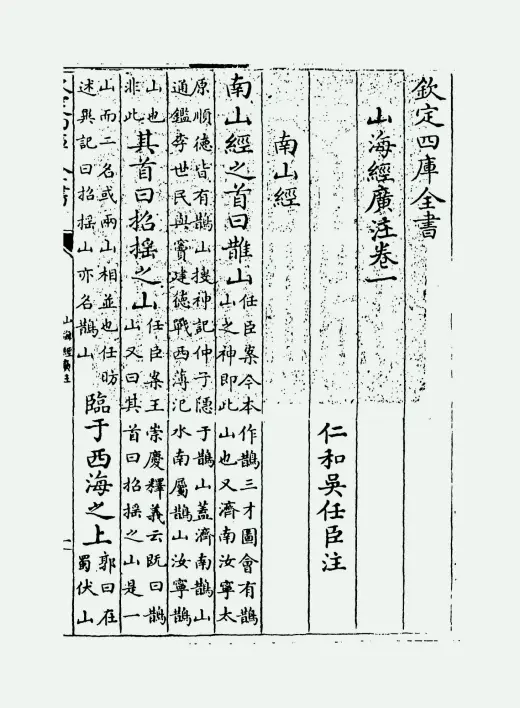 欽定四庫全書
山海經廣注卷一
仁和吳任臣注
南山經
南山經之首曰䧿山
任臣案今本作鵲三才圖會有鵲
山之神即此山也又濟南汝寧太
原順德皆有鵲山搜神記仲子隱于鵲山蓋濟南鵲山
通鑑秦世民與竇建德戰西薄汜水南屬鵲山汝寧鵲
山也
非此
其首曰招搖之山
任臣案王崇慶釋義云既曰鵲
山又曰其首曰招搖之山是一
山而二名或兩山相並也任昉
述異記曰招搖山亦名鵲山
臨于西海之上
郭曰在
蜀伏山
山海經廣注